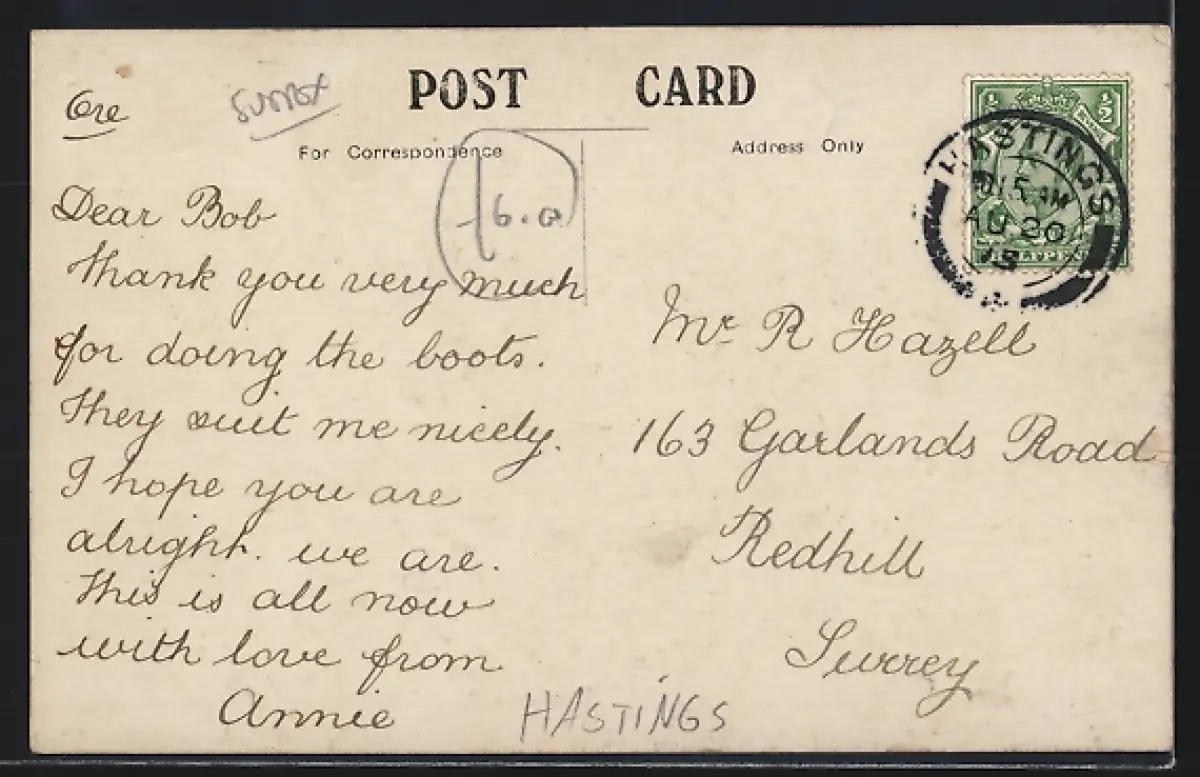 Ore
SUSSEX
POST CARD
For Correspondence
Address Only
6.0
½ ½
HASTINGS
AU 20
Dear Bob
Thank you very much
for doing the boots.
They suit me nicely.
I hope you are
alright. we are.
This is all now
with love from
Annie
Mr R Hazell
163 Garlands Road
Redhill
Surrey
HASTINGS